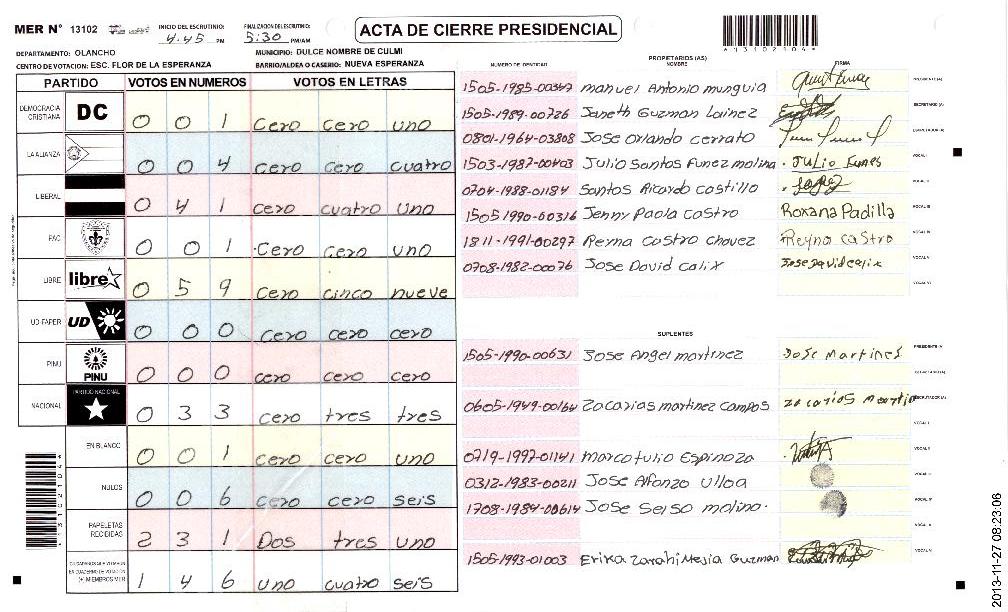 MER N° 13102
INICIO DEL ESCRUTINIO: 4:45 PM
FINALIZACION DEL ESCRUTINIO: 5:30 PM/AM
ACTA DE CIERRE PRESIDENCIAL
*13102104*
DEPARTAMENTO: OLANCHO
MUNICIPIO: DULCE NOMBRE DE CULMI
CENTRO DE VOTACION: ESC. FLOR DE LA ESPERANZA
BARRIO/ALDEA O CASERIO: NUEVA ESPERANZA
PARTIDO VOTOS EN NUMEROS VOTOS EN LETRAS
DEMOCRACIA CRISTIANA DC 0 0 1 cero cero uno
LA ALIANZA 0 0 4 cero cero cuatro
LIBERAL 0 4 1 cero cuatro uno
PAC 0 0 1 cero cero uno
LIBRE libre 0 5 9 cero cinco nueve
UD-FAPER UD 0 0 0 cero cero cero
PINU PINU 0 0 0 cero cero cero
NACIONAL PARTIDO NACIONAL 0 3 3 cero tres tres
EN BLANCO 0 0 1 cero cero uno
NULOS 0 0 6 cero cero seis
PAPELETAS RECIBIDAS 2 3 1 Dos tres uno
CIUDADANOS QUE VOTARON EN CUADERNO DE VOTACION (+) MIEMBROS MER 1 4 6 uno cuatro seis
NUMERO DE IDENTIDAD PROPIETARIOS (AS) NOMBRE FIRMA
1505-1985-00347 manuel Antonio munguia PRESIDENTE(A)
1505-1989-00726 Janeth Guzman Lainez SECRETARIO (A)
0801-1964-03808 Jose orlando cerrato ESCRUTADOR (A)
1503-1987-00403 Julio Santos Funez molina Julio Funes VOCAL I
0704-1988-01184 Santos Ricardo castillo VOCAL II
1505-1990-00316 Jenny Paola castro Roxana Padilla VOCAL III
1811-1991-00297 Reyna castro chavez Reyna castro VOCAL IV
0708-1982-00076 Jose David calix Jose David calix VOCAL V
VOCAL VI
SUPLENTES
1505-1990-00631 Jose Angel martinez Jose Martines PRESIDENTE(A)
SECRETARIO (A)
0605-1949-00164 zacarias martinez campos zacarias ESCRUTADOR (A)
VOCAL I
0719-1997-01141 marco tulio Espinoza VOCAL II
0312-1983-00211 Jose Alfonzo ulloa VOCAL III
1708-1984-00614 Jose Selso molina VOCAL IV
VOCAL V
1505-1993-01003 Erika zarahi Mejia Guzman VOCAL VI
2013-11-27 08:23:06
*13102104*